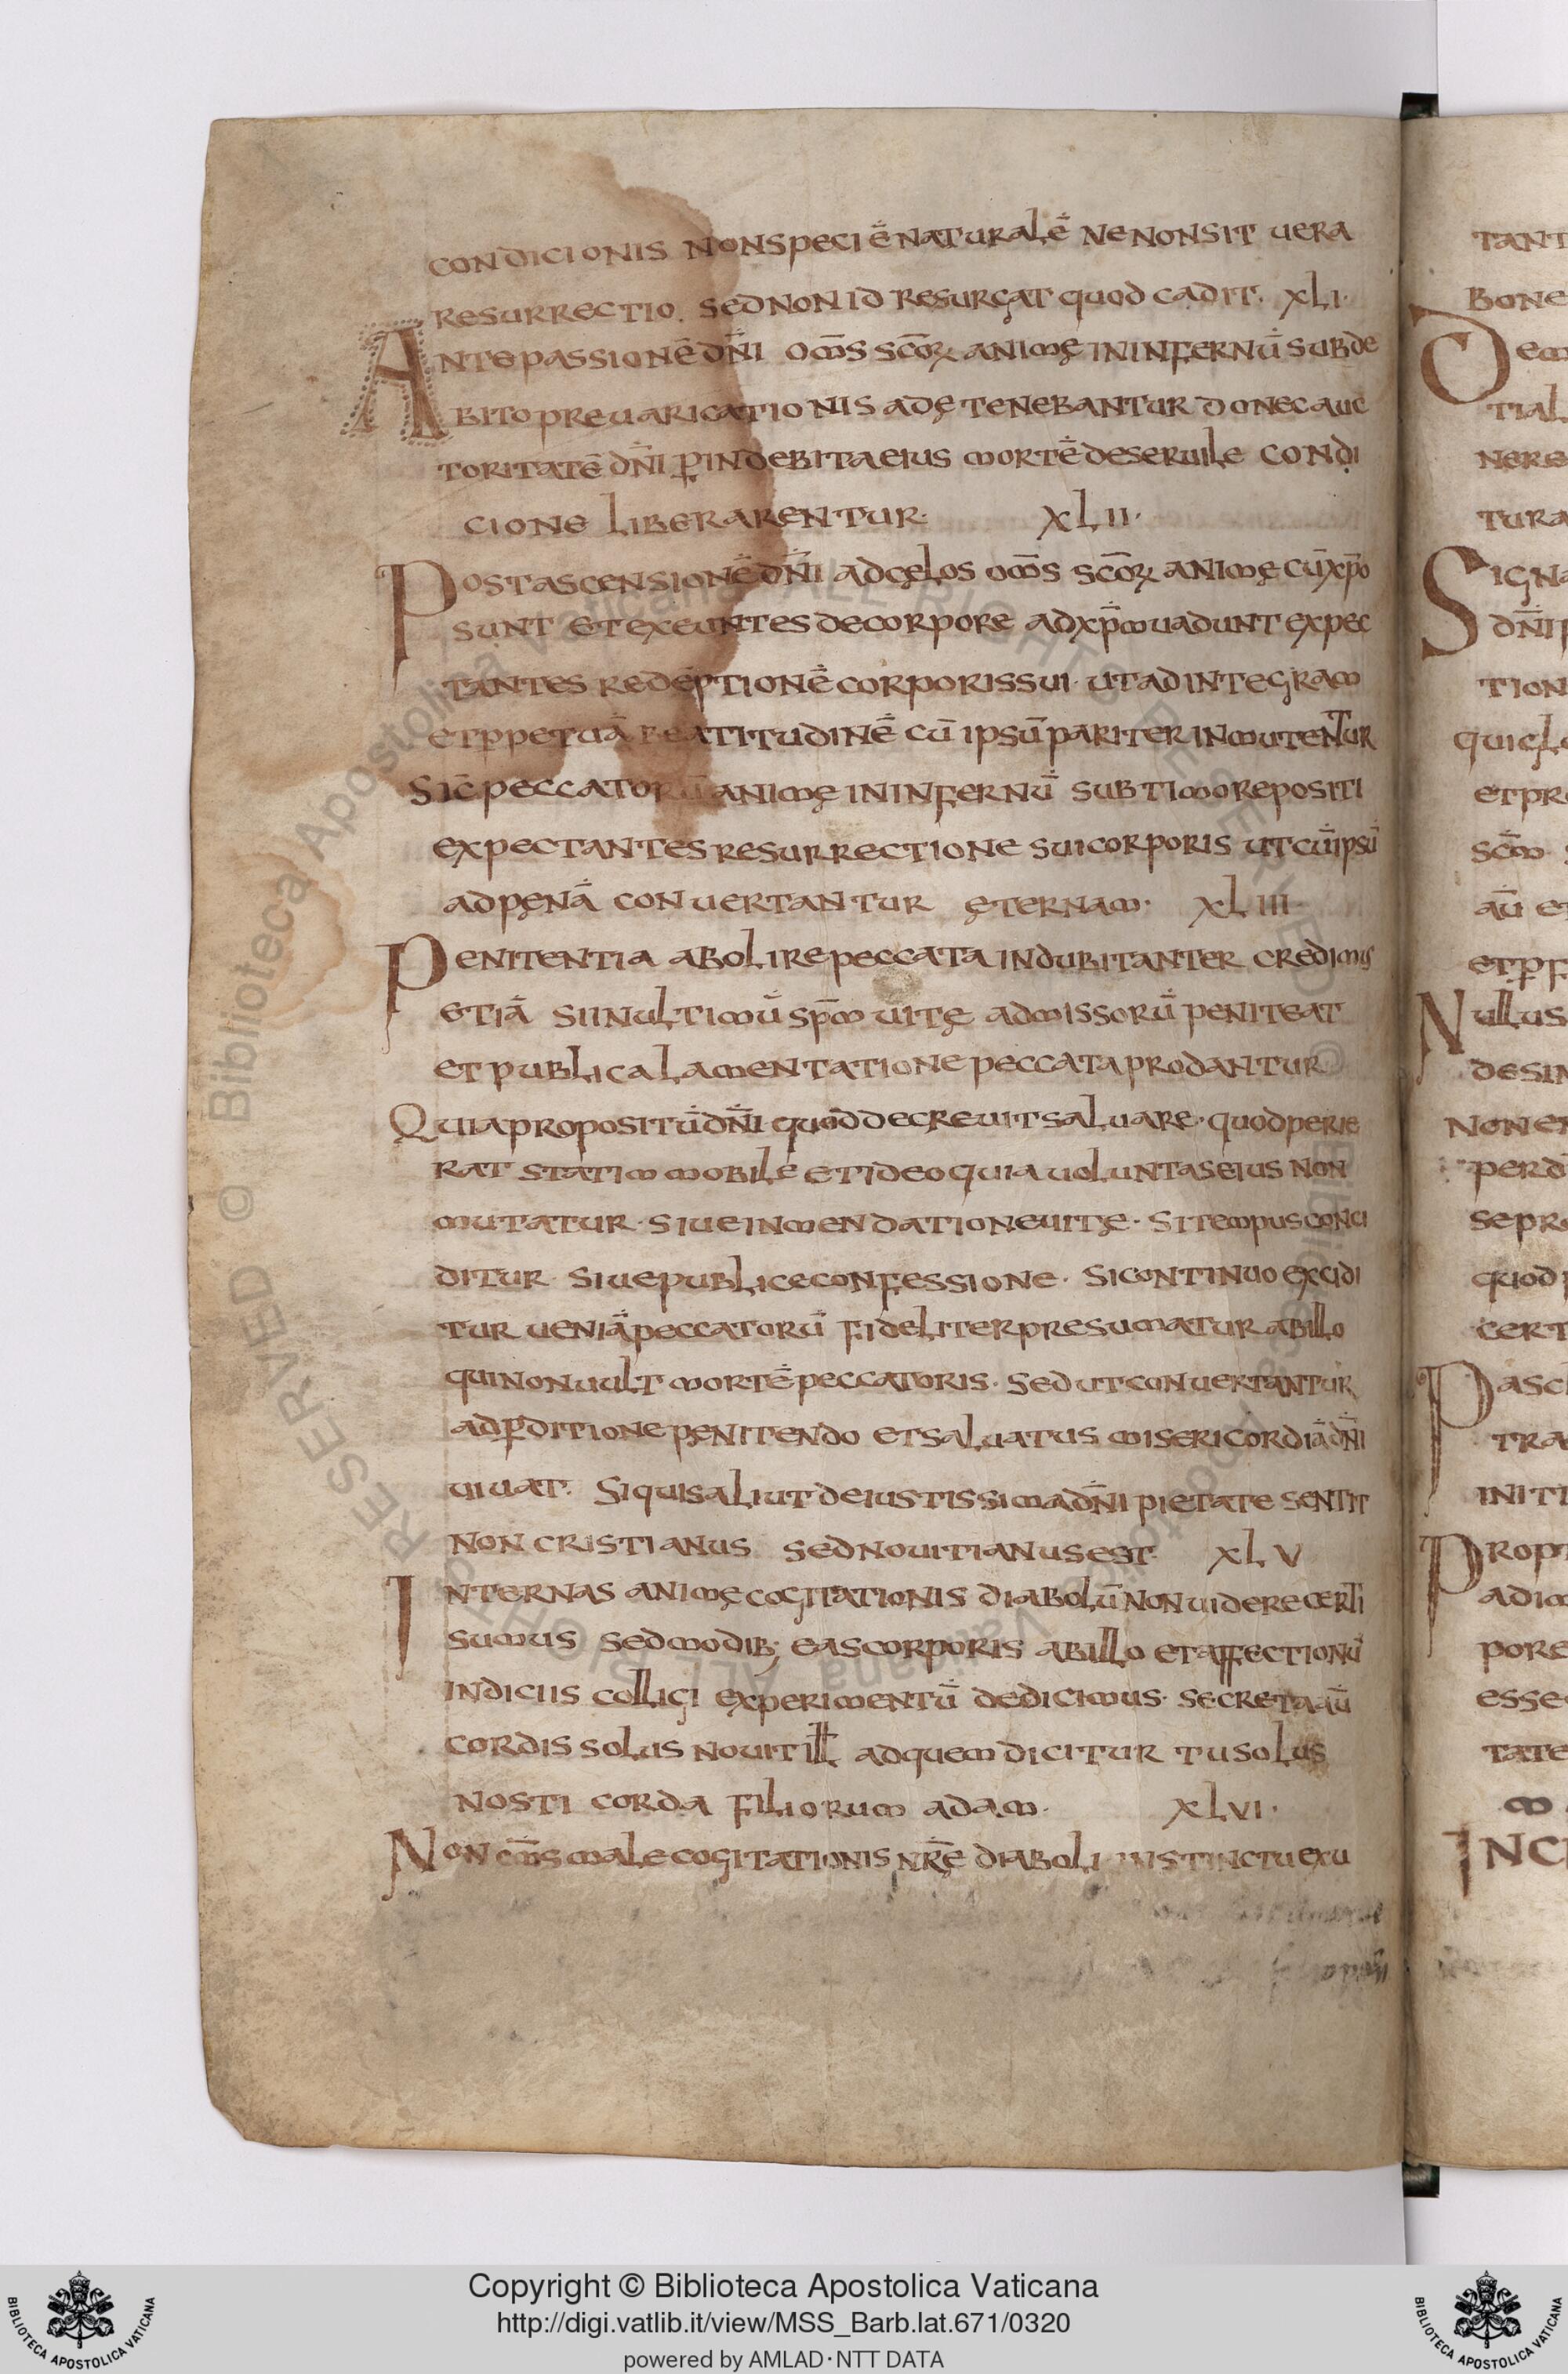 condicionis non speciē naturalē ne non sit uera
resurrectio. sed non id resurgat quod cadit. xli.
Ante passionē dn̄i om̄s sc̄oꝝ animę in infernū sub de
bito preuaricationis adę tenebantur donec auc
toritatē dn̄i ꝑ indebita eius mortē de seruile condi
cione liberarentur. xlii.
Post ascensionē dn̄i ad cęlos om̄s sc̄oꝝ animę cū xp̄o
sunt et exeuntes de corpore ad xp̄m uadunt expec
tantes redēptionē corporis sui. ut ad integram
et ppetuā beatitudinē cū ipsū pariter inmutentur
Sic̄ peccatorū animę in infernū sub timo repositi
expectantes resurrectione sui corporis ut cū ipsū
ad pęnā conuertantur ęternam. xliii.
Penitentia abolire peccata indubitanter credimus
etiā si in ultimū sp̄m uitę admissorū peniteat
et publica lamentatione peccata prodantur
Quia propositū dn̄i quod decreuit saluare. quod perie
rat stat immobile et ideo quia uoluntas eius non
mutatur. siue inmendatione uitę. si tempus conci
ditur siue publice confessione. si continuo excidi
tur ueniā peccatorū fideliter presumatur ab illo
qui non uult mortē peccatoris. sed ut conuertantur
ad ꝑditione pęnitendo et saluatus misericordiā dn̄i
uiuat. Si quis aliut de iustissima dn̄i pietate sentit
non cristianus sed nouitianus est. xlv
Internas animę cogitationis diabolū non uidere certi
sumus sed modib; eas corporis ab illo et affectionū
indiciis colligi experimentū dedicimus. secreta aū
cordis solus nouit ill̄ ad quem dicitur tu solus
nosti corda filiorum adam. xlvi.
Non om̄s male cogitationis nr̄ę diaboli instinctu exu
tant
bone
tial
nere
tura
Signa
dn̄i
tion
etpr
sc̄m
aū et
Nullus
desin
non
perd
sepr
quod
cert
Pasc
tra
initi
Prop
pore
esse
tate
m
Inc
Copyright © Biblioteca Apostolica Vaticana
http://digi.vatlib.it/view/MSS_Barb.lat.671/0320
powered by AMLAD·NTT DATA
BIBLIOTECA APOSTOLICA VATICANA
BIBLIOTECA APOSTOLICA VATICANA
© Biblioteca Apostolica Vaticana ALL RIGHTS RESERVED